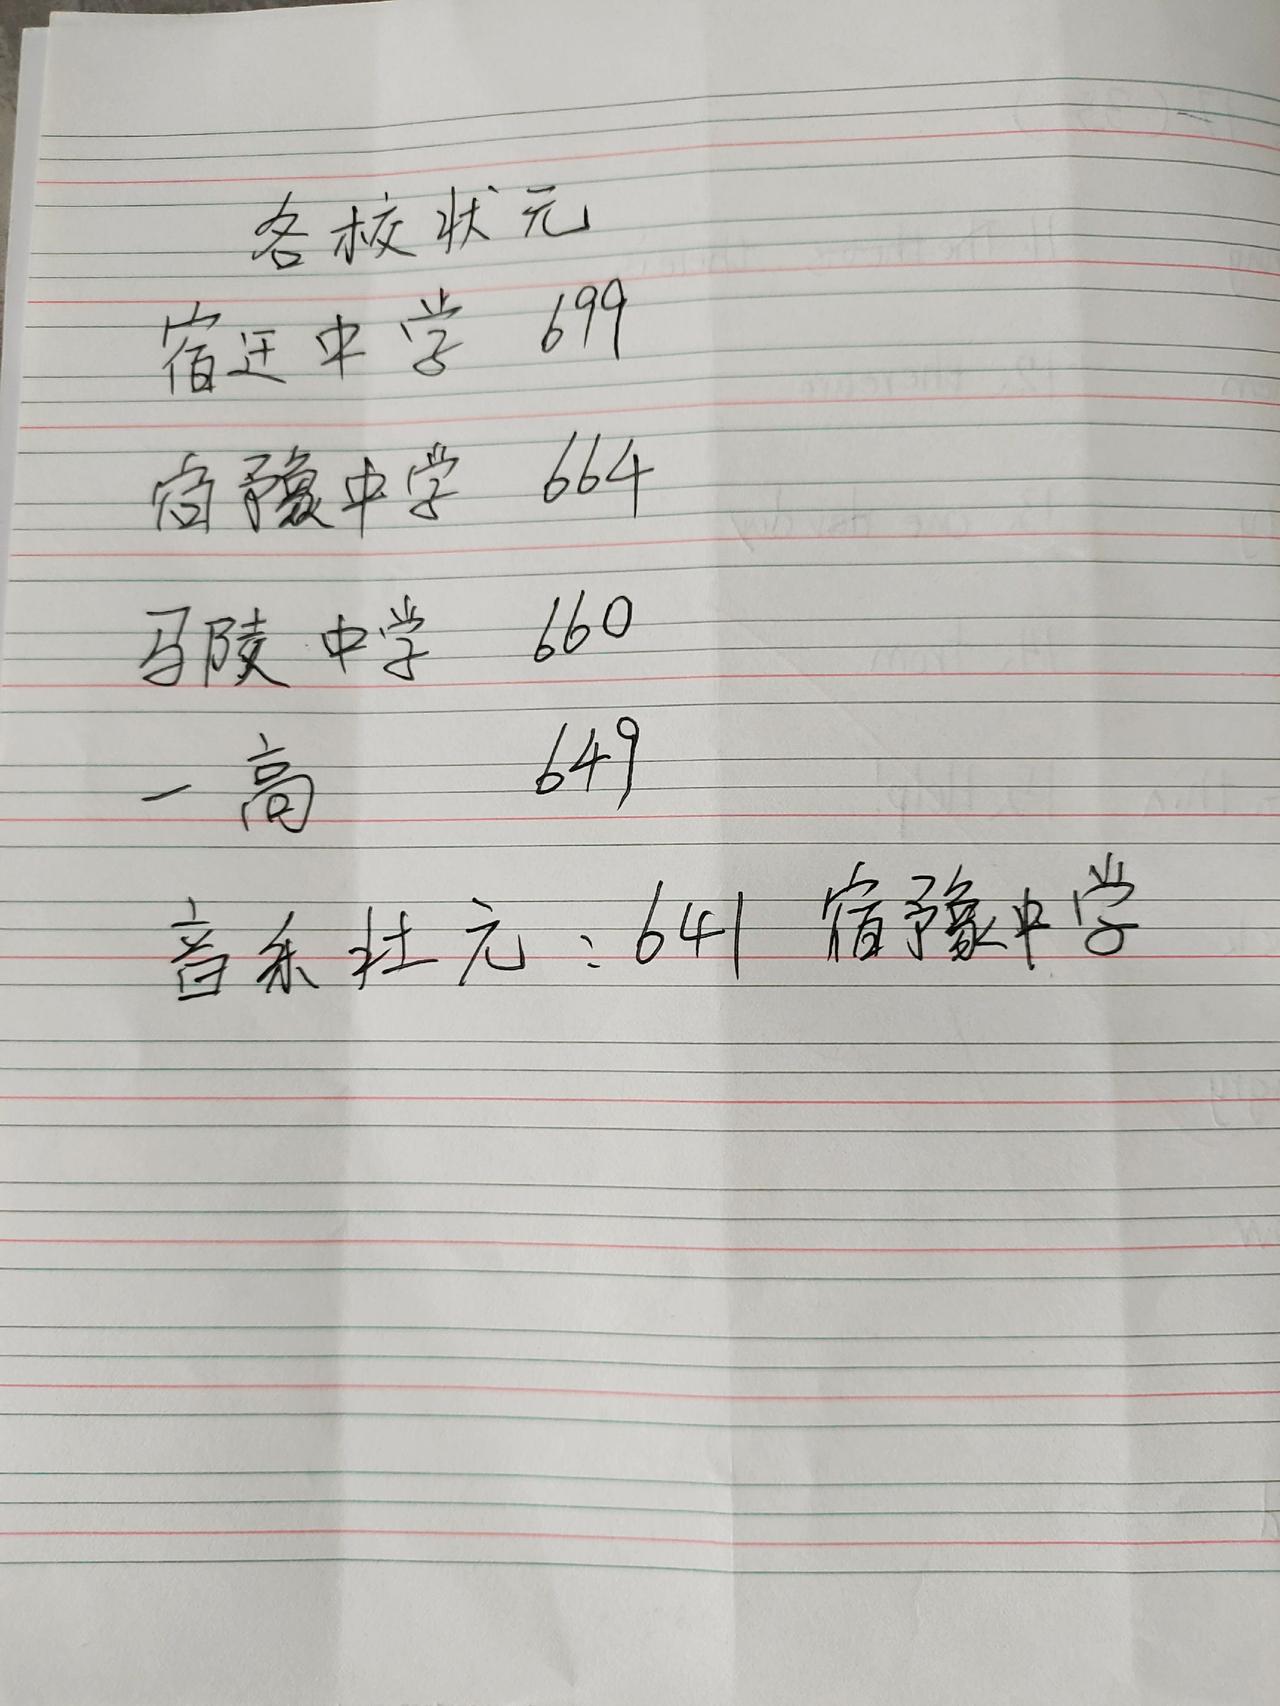 各校状元
宿迁中学 699
宿豫中学 664
马陵中学 660
一高 649
音乐状元：641 宿豫中学